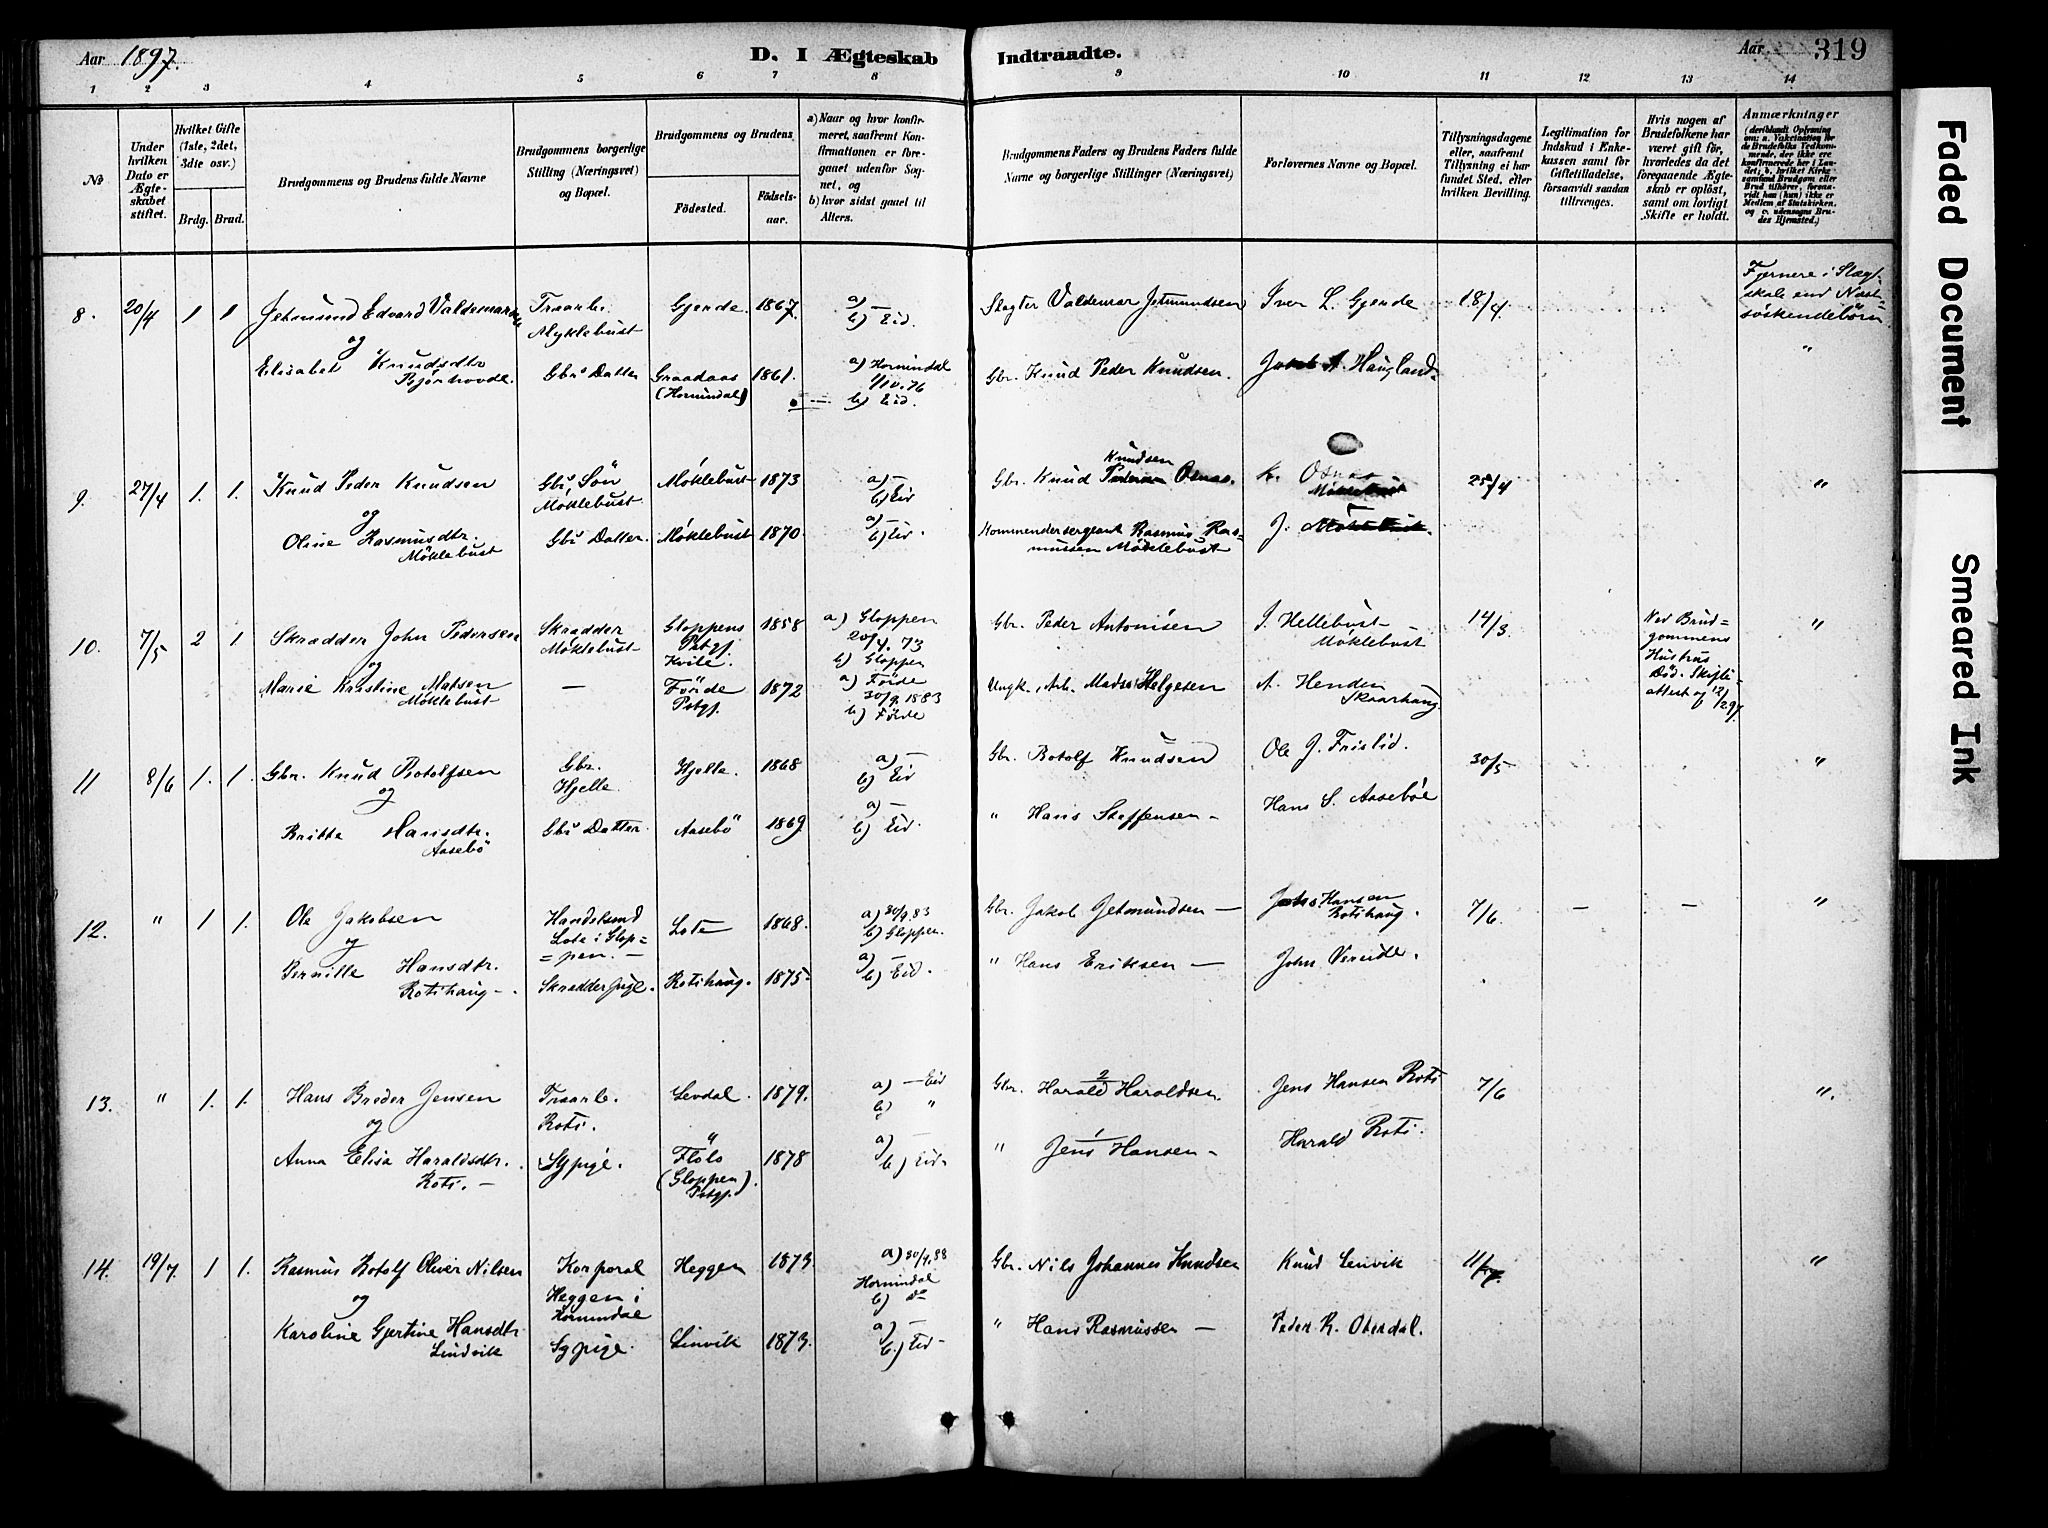 Aar 1897.
D. I Ægteskab Indtraadte.
Aar 319
1 2 3 4 5 6 7 8 9 10 11 12 13 14
No
Under hvilken Dato er Ægteskabet stiftet.
Hvilket Gifte (1ste, 2det, 3die osv.)
Brdg. Brud.
Brudgommens og Brudens fulde Navne
Brudgommens borgerlige Stilling (Næringsvei) og Bopæl.
Brudgommens og Brudens
Fødested.
Fødselsaar.
a) Naar og hvor konfirmeret, saafremt Konfirmationen er foregaaet udenfor Sognet, og
b) hvor sidst gaaet til Alters.
Brudgommens Faders og Brudens Faders fulde Navne og borgerlige Stillinger (Næringsvei)
Forlovernes Navne og Bopæl.
Tillysningsdagene eller, saafremt Tillysning ei har fundet Sted, efter hvilken Bevilling.
Legitimation for Indskud i Enkekassen samt for Giftetilladelse, forsaavidt saadan tiltrænges.
Hvis nogen af Brudefolkene har været gift før, hvorledes da det foregaaende Ægteskab er opløst, samt om lovligt Skifte er holdt.
Anmærkninger
8. 20/4 1 1 Jetmund Edvard Valdemarsen Traarb. Myklebust Gjerde. 1867. a) — b) Eid. Slagter Valdemar Jetmundsen Iver L. Gjerde 18/4. Fjernere i Slægtskab end Næstsøskendebørn
og
Elisabet Knudsdtr. Bjørhovde. Gbrs Datter Graadaas (Hornindal) 1861. a) Hornindal 1/10.76 b) Eid. Gbr. Knud Peder Knudsen. Jakob A. Haugland. "
9. 27/4 1. 1. Knud Peder Knudsen Gbs Søn Møklebust Møklebust 1873 a) — b) Eid Gbr. Knud Knudsen Osnes. K. Osnes 25/4 "
og
Oline Rasmusdtr. Møklebust Gbs Datter. Møklebust 1870. a) — b) Eid. Kommendersergeant Rasmus Rasmussen Møklebust J.
10. 7/5 2 1. Skrædder John Pedersen Skrædder Møklebust Gloppens Pstgj. Kvile. 1858 a) Gloppen 20/4.73 b) Gloppen Gbr. Peder Antonisen J. Hellebust Møklebust 14/3. Ved Brudgommens Hustrus Død. Skifteattest af 12/2 97 "
og
Marie Kristine Matsen Møklebust — Førde Pstgj. 1872 a) Førde 30/9.1883 b) Førde Ungk., Arb. Mads Helgesen A. Henden Skaarhaug
11 8/6 1. 1. Gbr. Knud Botolfsen Gbr. Hjelle. Hjelle. 1868 a) — b) Eid Gbr. Botolf Knudsen Ole J. Frislid. 30/5 "
og
Britta Hansdtr. Aasebø Gbs Datter. Aasebø 1869 a) — b) Eid. " Hans Steffensen — Hans S. Aasebøe
12. " 1 1. Ole Jakobsen Handelsmd Lote i Gloppen. — Lote 1868. a) 30/9.83 b) Gloppen. Gbr. Jakob Jetmundsen — Hansen Rotihaug. 7/6. — — "
og
Pernille Hansdtr. Rotihaug —. Skrædderpige. Rotihaug. 1875. a) — b) Eid. " Hans Eriksen —
13. " 1. 1. Hans Breder Jensen Traarb. Roti. Levdal. 1879. a) — Eid b) " Gbr. 2 Harald Haraldsen. Jens Hansen Roti 7/6 ".
og
Anna Elisa Haraldsdtr. Roti. — Sypige. Flølo (Gloppen Pstgj.) 1878 a) — b) Eid. " 1 Jens Hansen — Harald Roti.
14. 19/7. 1 1. Rasmus Botolf Oliver Nilsen Korporal Heggen i Hornindal Heggen 1873. a) 30/9.88 Hornindal b) do Gbr. Nils Johannes Knudsen Knud Lenvik 11/7. "
og
Karoline Gjertine Hansdtr. Lindvik Sypige. Linvik 1873. a) — b) Eid — " Hans Rasmussen — Peder R. Otterdal.
Faded Document
Smeared Ink